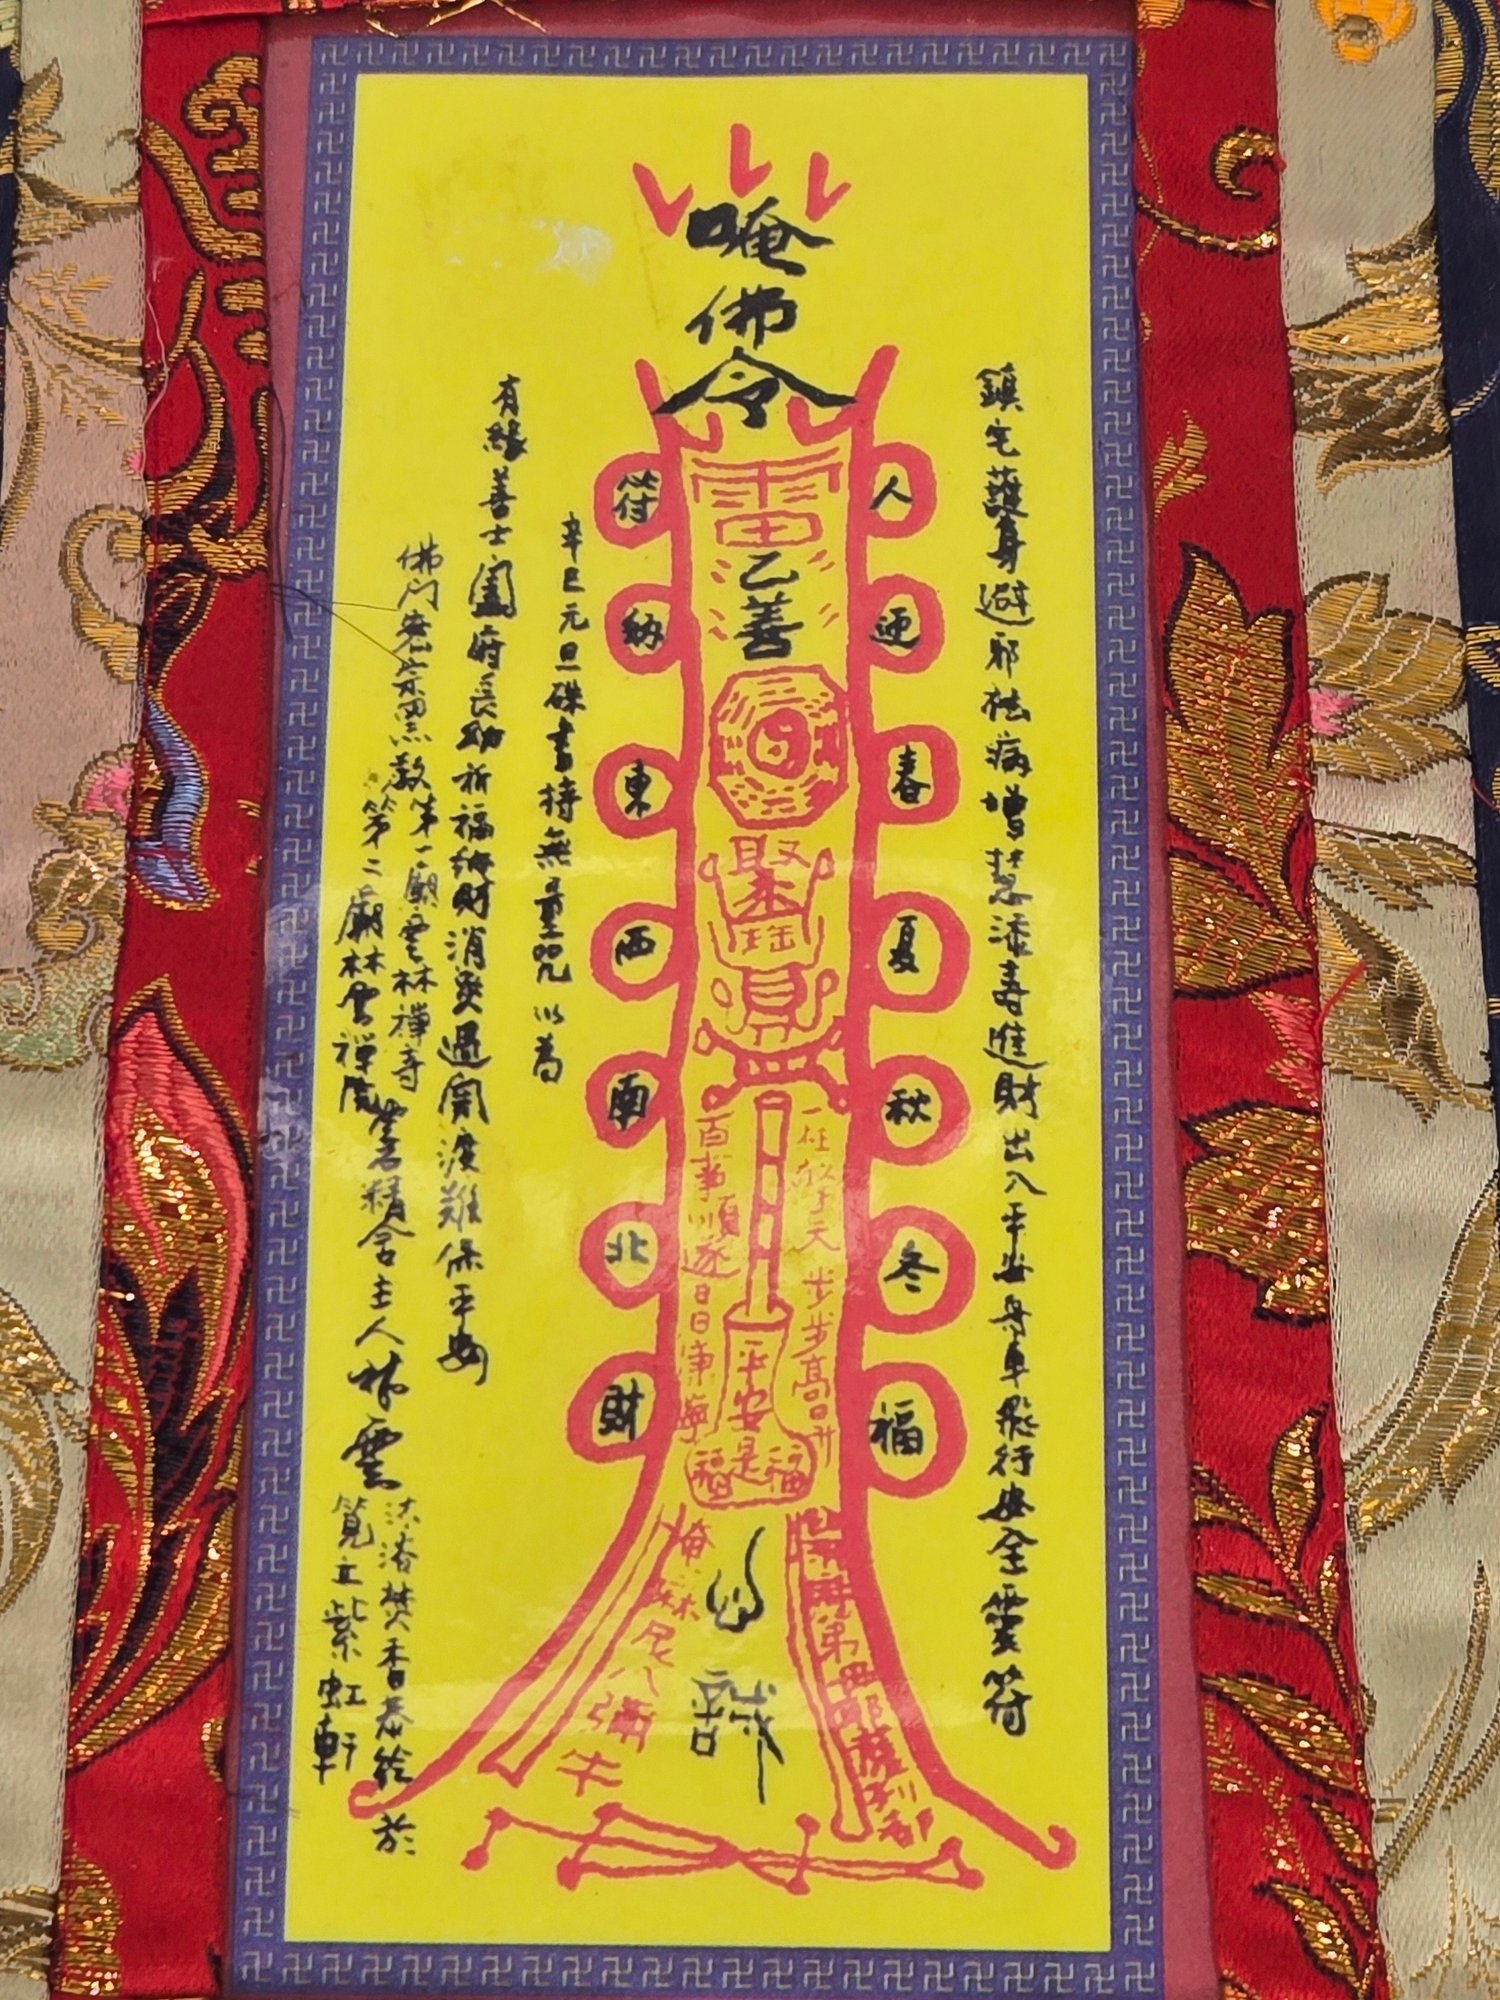 唵
佛
令
鎮宅護身避邪祛病增慧添壽進財出入平安舟車飛行安全靈符
人
迎
春
夏
秋
冬
福
符
納
東
西
南
北
財
雷
乙
善
聚
任君行天步步高日升
百事順遂日日康寧
平安是福
福
辛巳元旦硃書持無量咒以為
有緣善士闔府長幼祈福納財消災過關渡難保平安
佛門密宗黑教第一廟雲林禪寺
第二廟林雲禪院
主人林雲
沐浴焚香恭繪於
筧立紫虹軒